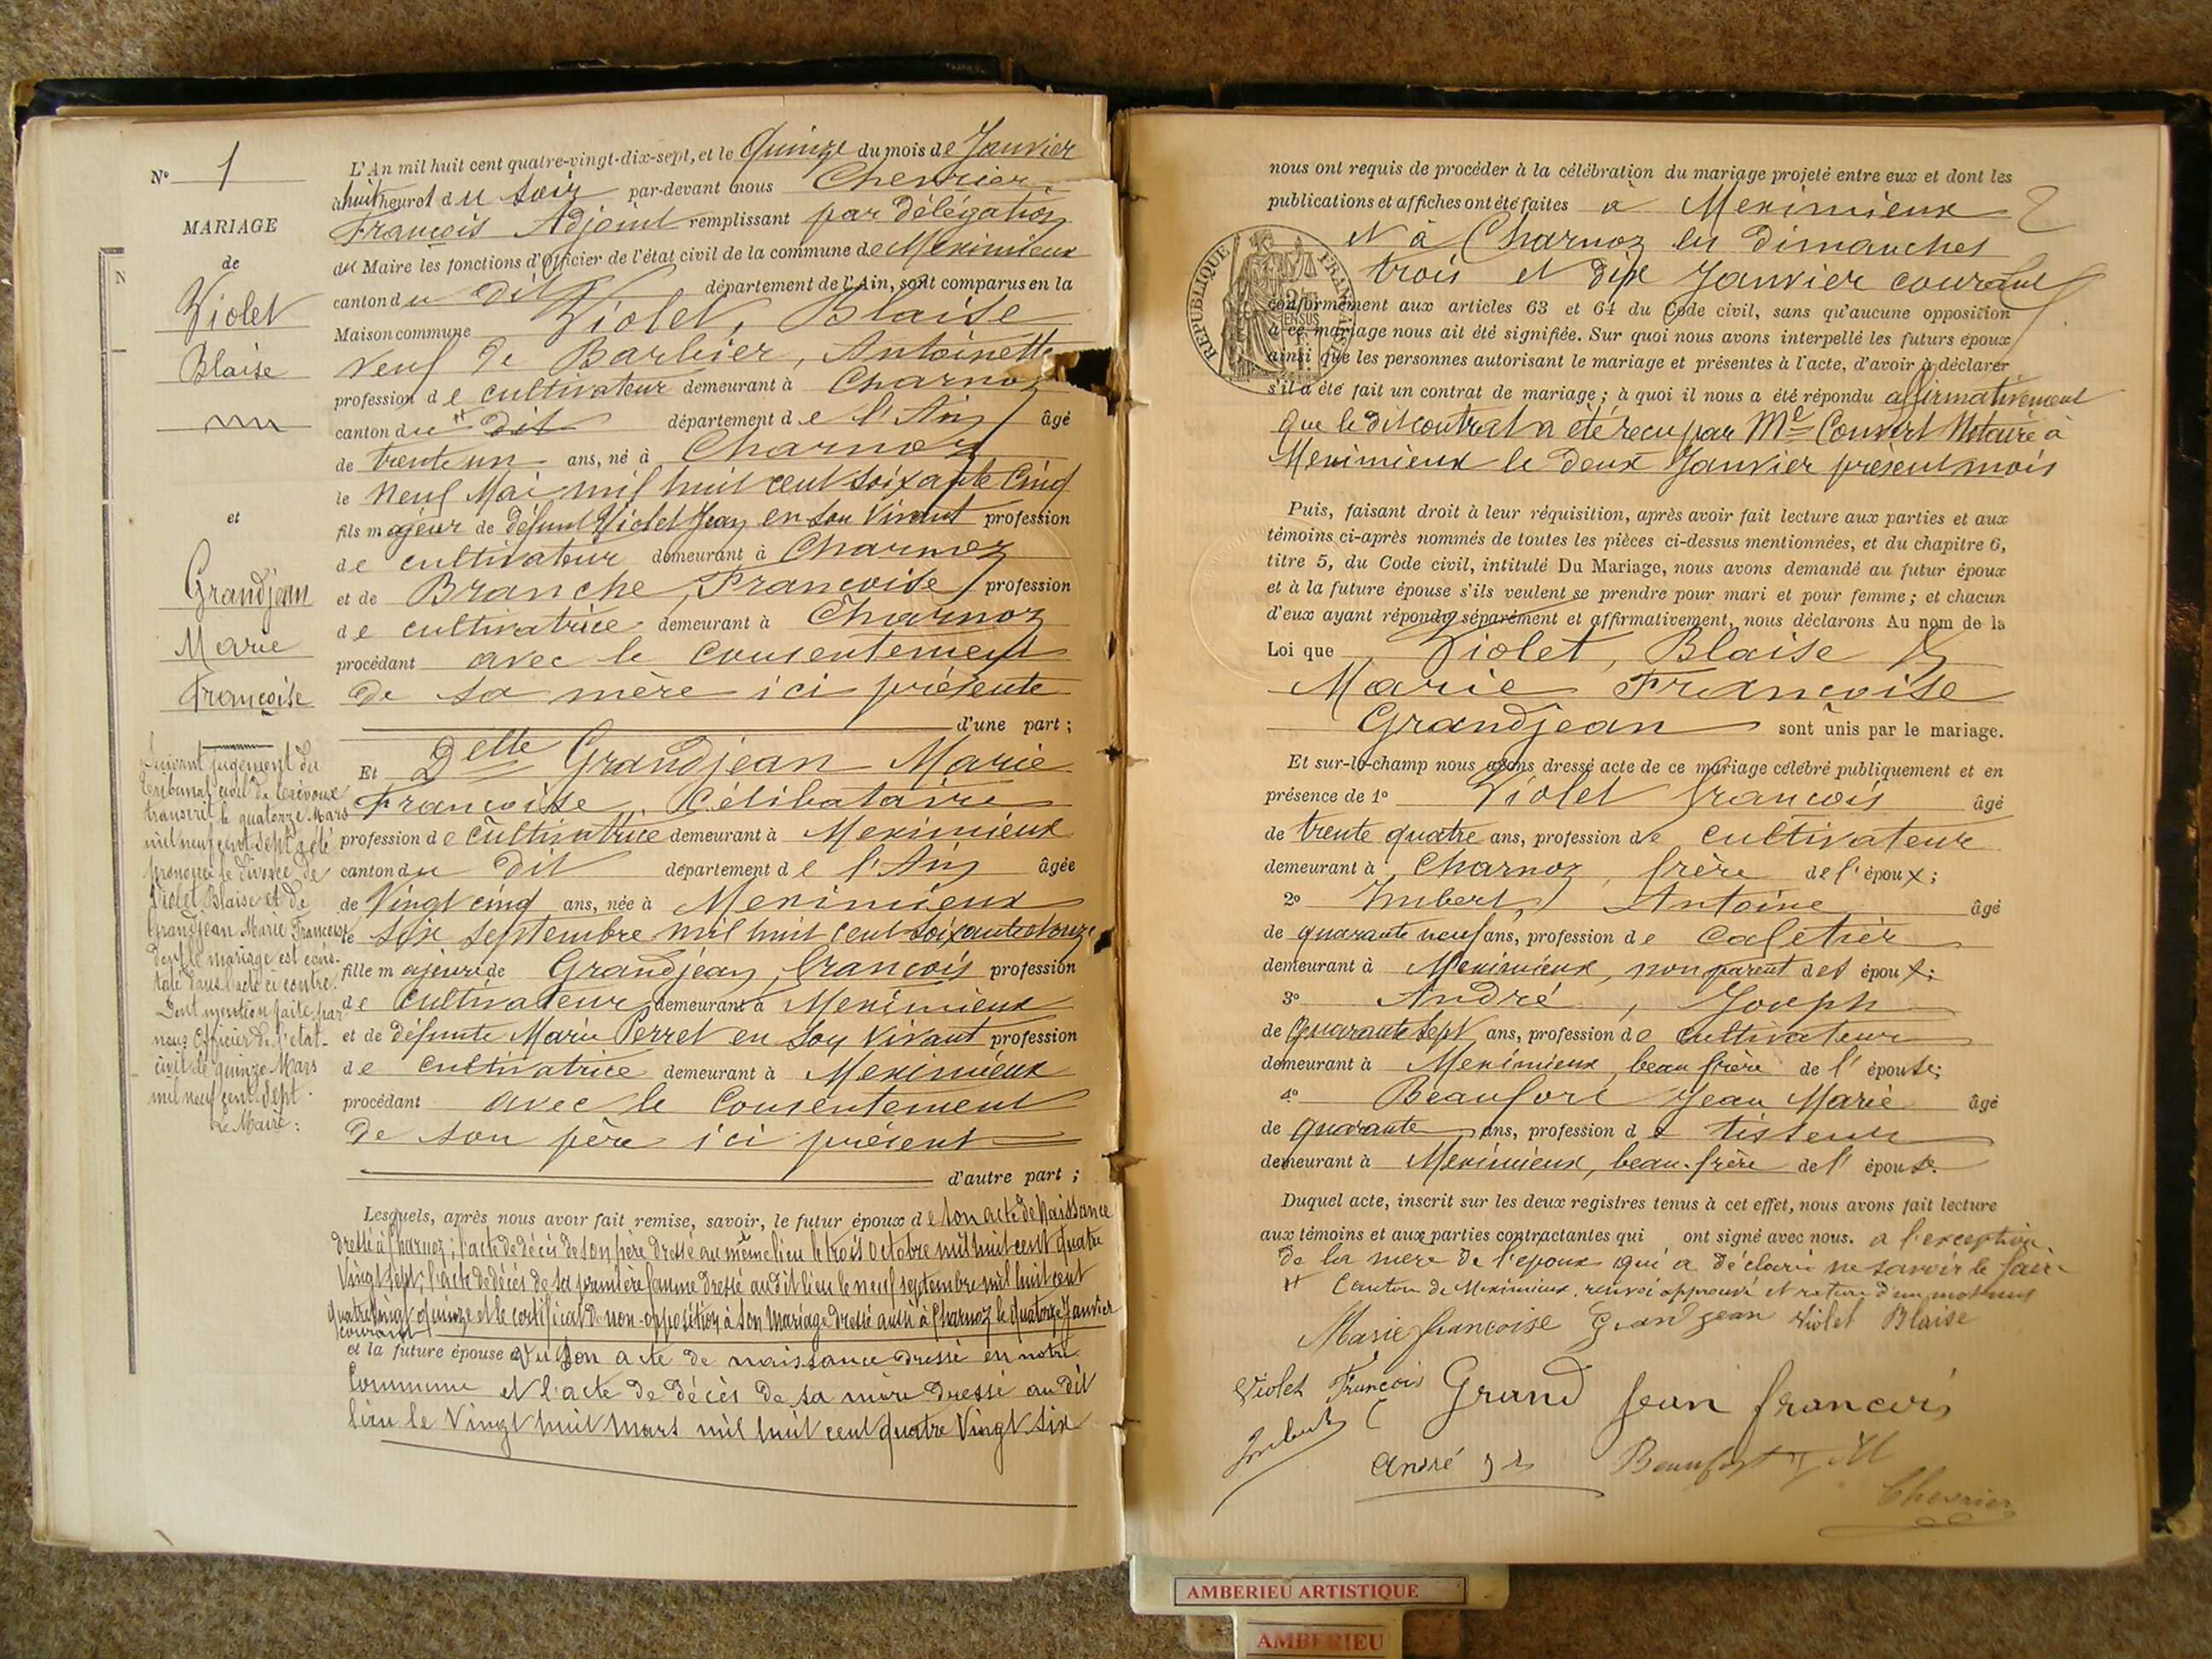 N° 1
MARIAGE
de
Violet
Blaise
et
Grandjean
Marie
Françoise
Suivant jugement du
tribunal civil de Trévoux
transcrit le quatorze Mars
mil neuf cent sept a été
prononcé le divorce de
Violet Blaise et de
Grandjean Marie Françoise
dont le mariage est cons-
taté dans l'acte ci contre.
Dont mention faite par
nous Officier de l'état-
civil le quinze Mars
mil neuf cent sept.
Le Maire:
N
L'An mil huit cent quatre-vingt-dix-sept, et le Quinze du mois de Janvier
à huit heures du soir par-devant nous Chevrier,
François Adjoint remplissant par délégation
du Maire les fonctions d'Officier de l'état civil de la commune de Meximieux
canton du dit département de l'Ain, sont comparus en la
Maison commune Violet, Blaise
veuf de Barbier, Antoinette
profession de cultivateur demeurant à Charnoz
canton du dit département de l'Ain âgé
de trente un ans, né à Charnoz
le neuf Mai mil huit cent soixante cinq
fils majeur de défunt Violet Jean en son vivant profession
de cultivateur demeurant à Charnoz
et de Branche, Françoise profession
de cultivatrice demeurant à Charnoz
procédant avec le consentement
de sa mère ici présente
d'une part;
Et Delle Grandjean Marie
Françoise, Célibataire
profession de cultivatrice demeurant à Meximieux
canton du dit département de l'Ain âgée
de Vingt cinq ans, née à Meximieux
le six septembre mil huit cent soixante et onze
fille majeure de Grandjean, François profession
de cultivateur demeurant à Meximieux
et de défunte Marie Perret en son vivant profession
de cultivatrice demeurant à Meximieux
procédant avec le consentement
de son père ici présent
d'autre part;
Lesquels, après nous avoir fait remise, savoir, le futur époux de son acte de Naissance
dressé à Charnoz; l'acte de décès de son père dressé au même lieu le trois octobre mil huit cent quatre
Vingt sept; l'acte de décès de sa première femme dressé au dit lieu le neuf septembre mil huit cent
quatre vingt quinze et le certificat de non-opposition à son mariage dressé aussi à Charnoz le quatorze Janvier
courant
et la future épouse Vu son acte de naissance dressé en notre
Commune et l'acte de décès de sa mère dressé au dit
lieu le Vingt huit mars mil huit cent quatre Vingt six
nous ont requis de procéder à la célébration du mariage projeté entre eux et dont les
publications et affiches ont été faites à Meximieux
et à Charnoz les dimanches
trois et dix Janvier courant
conformément aux articles 63 et 64 du Code civil, sans qu'aucune opposition
à ce mariage nous ait été signifiée. Sur quoi nous avons interpellé les futurs époux
ainsi que les personnes autorisant le mariage et présentes à l'acte, d'avoir à déclarer
s'il a été fait un contrat de mariage; à quoi il nous a été répondu affirmativement
que le dit contrat a été reçu par Me Convert Notaire à
Meximieux le deux Janvier présent mois
Puis, faisant droit à leur réquisition, après avoir fait lecture aux parties et aux
témoins ci-après nommés de toutes les pièces ci-dessus mentionnées, et du chapitre 6,
titre 5, du Code civil, intitulé Du Mariage, nous avons demandé au futur époux
et à la future épouse s'ils veulent se prendre pour mari et pour femme; et chacun
d'eux ayant répondu séparément et affirmativement, nous déclarons Au nom de la
Loi que Violet, Blaise &
Marie Françoise
Grandjean sont unis par le mariage.
Et sur-le-champ nous avons dressé acte de ce mariage célébré publiquement et en
présence de 1° Violet françois âgé
de trente quatre ans, profession de cultivateur
demeurant à Charnoz, frère de l'époux;
2° Imbert, Antoine âgé
de quarante neuf ans, profession de cafetier
demeurant à Meximieux, non parent des époux;
3° André, Joseph
de Quarante sept ans, profession de cultivateur
demeurant à Meximieux, beau frère de l'épouse;
4° Beaufort Jean Marie âgé
de quarante ans, profession de tisseur
demeurant à Meximieux, beau-frère de l'épouse.
Duquel acte, inscrit sur les deux registres tenus à cet effet, nous avons fait lecture
aux témoins et aux parties contractantes qui ont signé avec nous. à l'exception
de la mère de l'époux qui a déclaré ne savoir le faire
Canton de Meximieux, renvoi approuvé et rature d'un mot nul
Marie françoise Grandjean Violet Blaise
Violet François Grand Jean françois
Imbert
André Beaufort J M
Chevrier
RÉPUBLIQUE FRANÇAISE
AMBERIEU ARTISTIQUE
AMBERIEU